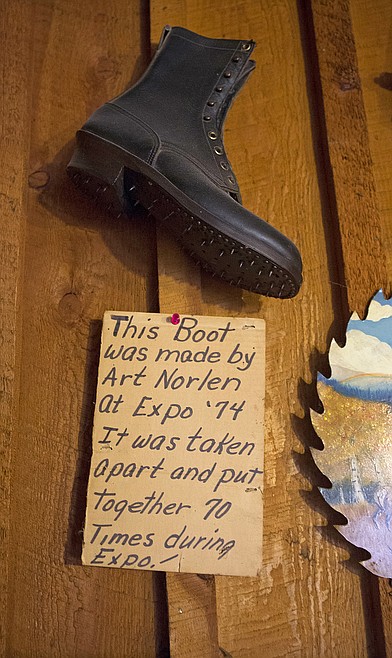 This Boot
was made by
Art Norlen
at Expo '74
It was taken
apart and put
together 70
Times during
Expo.!